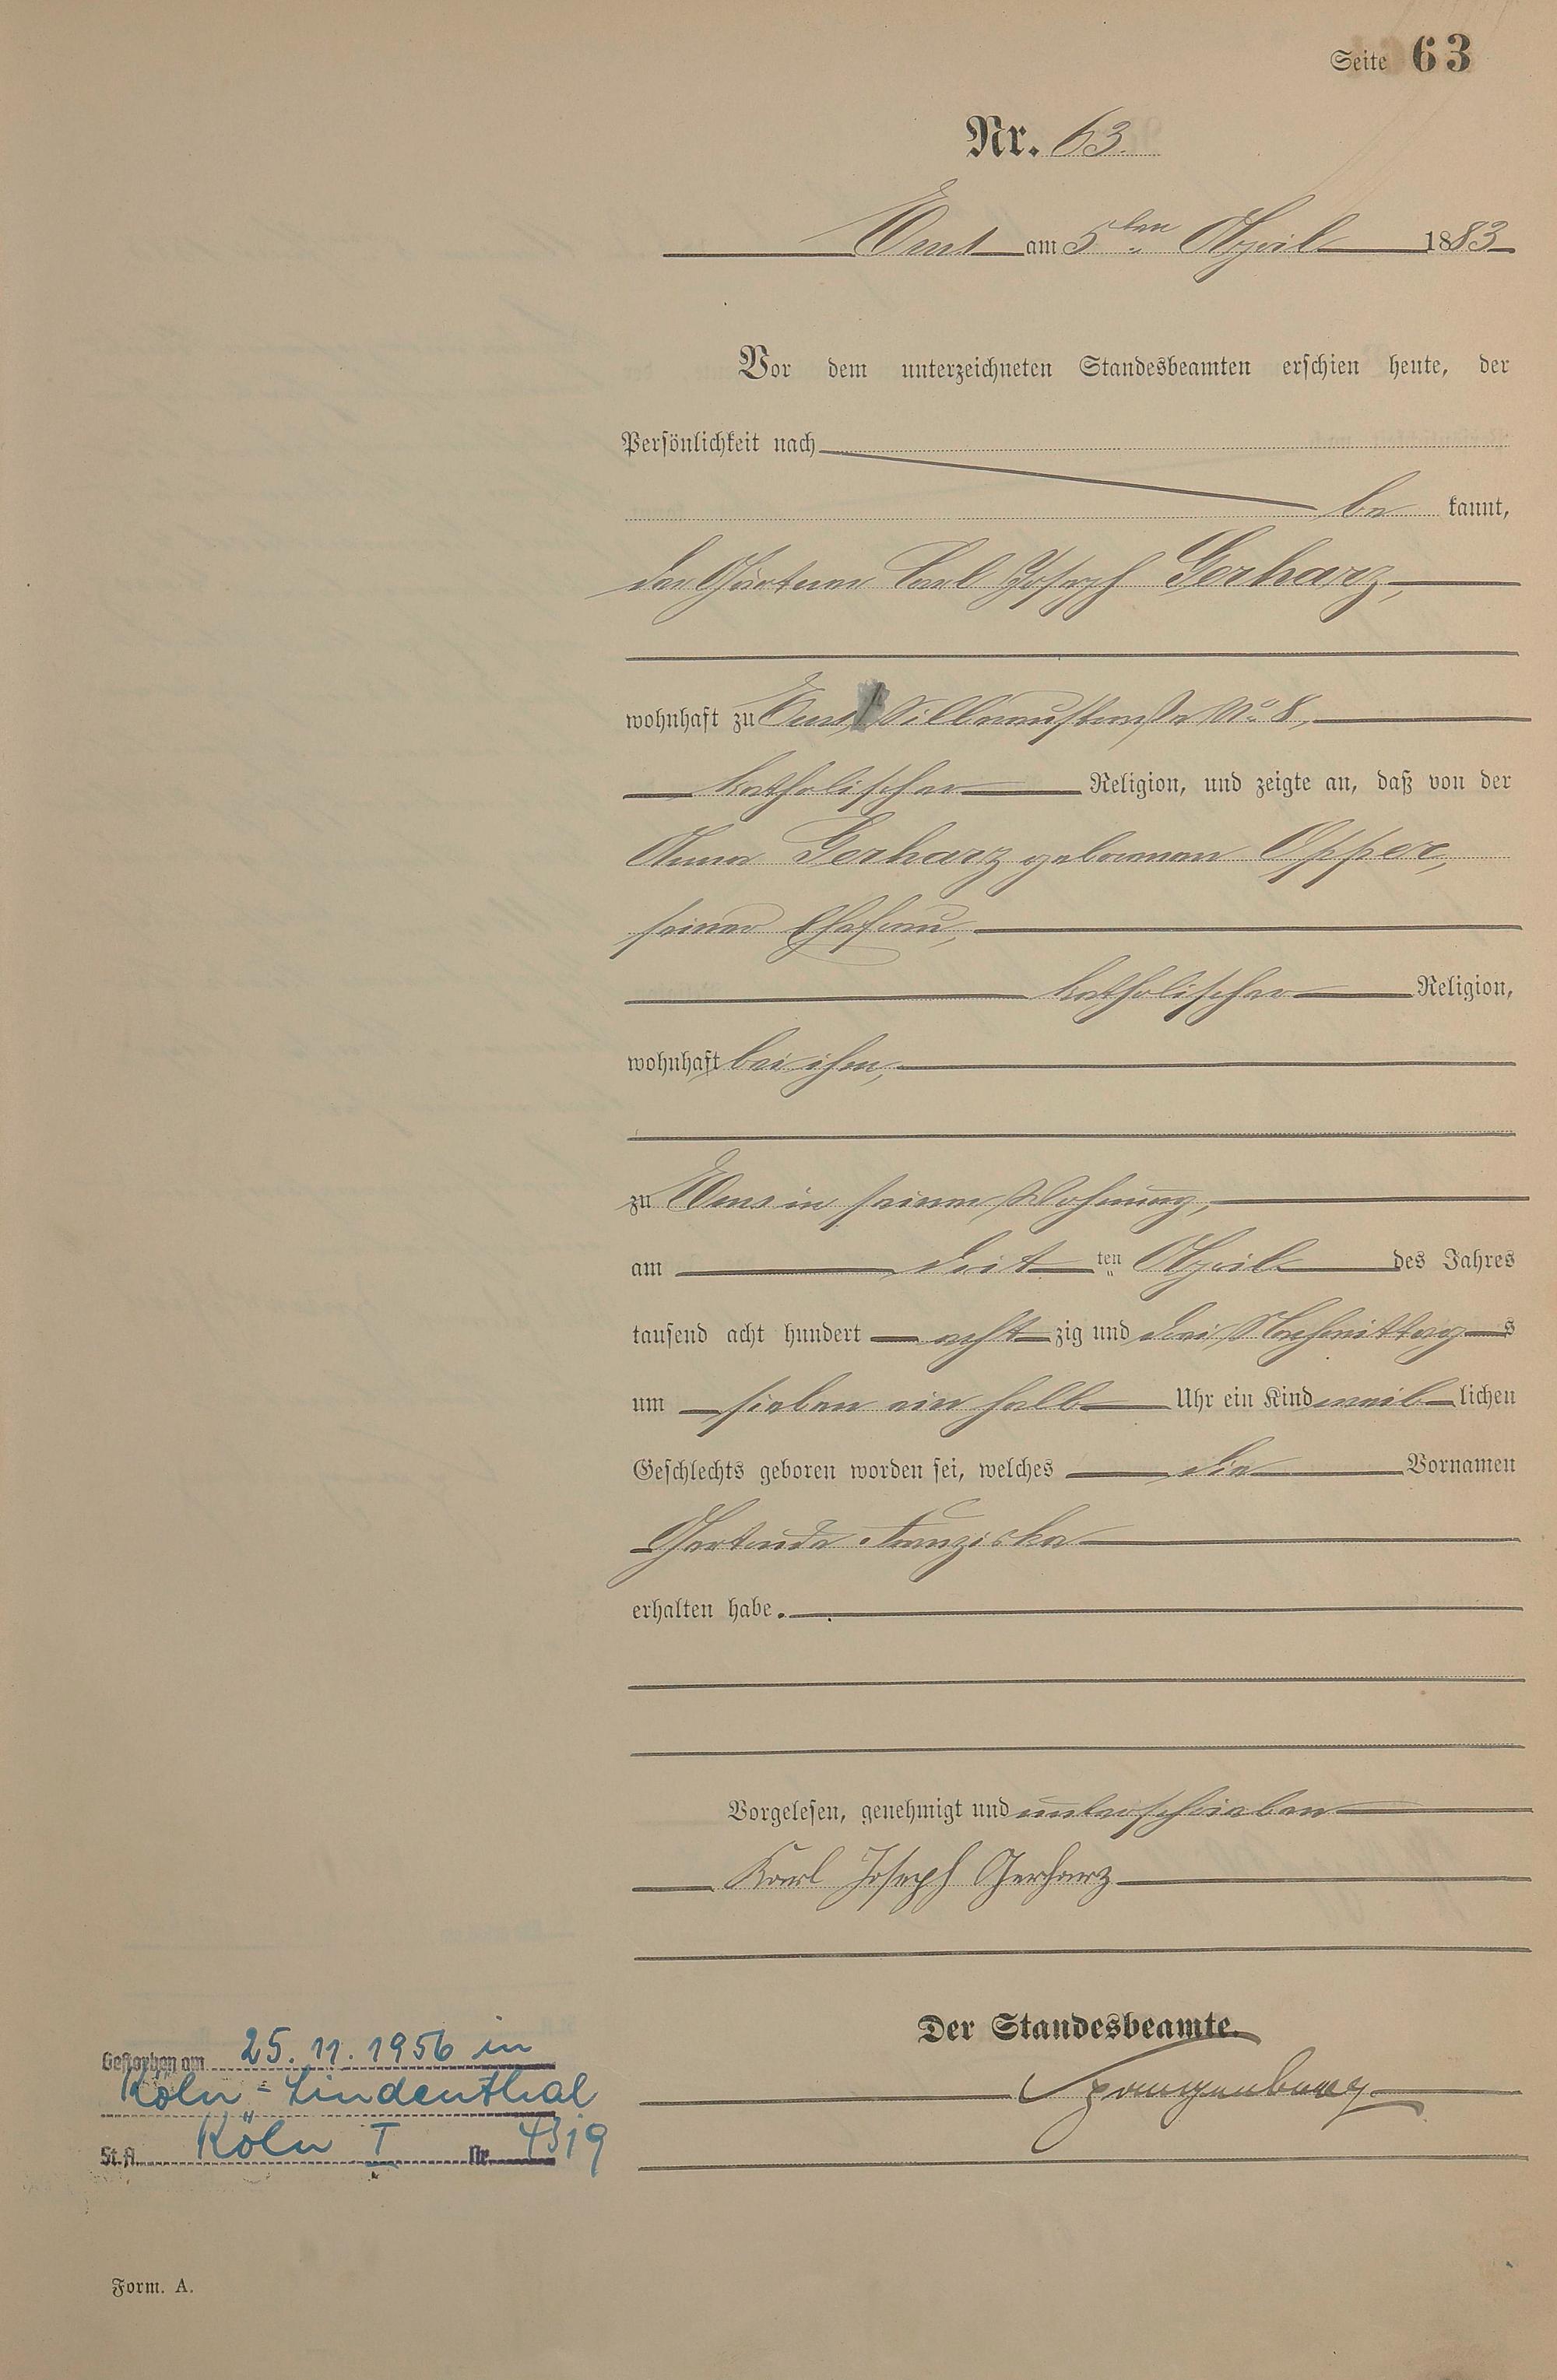 Seite 63
Nr. 63.
Ems am 5ten April 1883
Vor dem unterzeichneten Standesbeamten erschien heute, der
Persönlichkeit nach
be kannt,
der Gärtner Carl Joseph Gerharz,
wohnhaft zu Ems, No. 8,
katholischer Religion, und zeigte an, daß von der
Anna Gerharz geborenen Opper,
seiner Ehefrau,
katholischer Religion,
wohnhaft bei ihm,
zu Ems in seiner Wohnung,
am dritten April des Jahres
tausend acht hundert achtzig und drei Nachmittags
um sieben ein halb Uhr ein Kind weiblichen
Geschlechts geboren worden sei, welches die Vornamen
Gertrude Franziska
erhalten habe.
Vorgelesen, genehmigt und unterschrieben
Karl Joseph Gerharz
Der Standesbeamte.
Spangenberg
Gestorben am 25.11.1956 in
Köln-Lindenthal
St.A. Köln I Nr. 4319
Form. A.